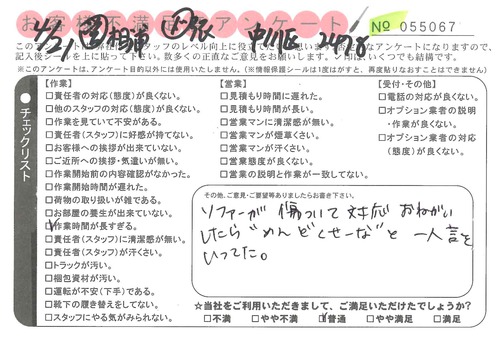 お客様不満足アンケート
No 055067
4/21
記入後シールを上に貼って下さい。数多くの正直なご意見をお願いします。✓印はいくつでも結構です。
(※このアンケートは、アンケート目的以外には使用いたしません。(※情報保護シールは1度はがすと、再度貼りなおすことはできません)
チェックリスト
【作業】
□責任者の対応(態度)が良くない。
□他のスタッフの対応(態度)が良くない。
□作業を見ていて不安がある。
□責任者(スタッフ)に好感が持てない。
□お客様への挨拶が出来ていない。
□ご近所への挨拶・気遣いが無い。
□作業開始前の内容確認がなかった。
□作業開始時間が遅れた。
□荷物の取り扱いが雑である。
□お部屋の養生が出来ていない。
✓作業時間が長すぎる。
□責任者(スタッフ)に清潔感が無い。
□責任者(スタッフ)が汗くさい。
□トラックが汚い。
□梱包資材が汚い。
□運転が不安(下手)である。
□靴下の履き替えをしてない。
□スタッフにやる気がみられない。
【営業】
□見積もり時間に遅れた。
□見積もり時間が長い。
□営業マンに清潔感が無い。
□営業マンが煙草くさい。
□営業マンが汗くさい。
□営業態度が良くない。
□営業の説明と作業が一致してない。
【受付・その他】
□電話の対応が良くない。
□オプション業者の説明
・作業が良くない。
□オプション業者の対応
(態度)が良くない。
その他、ご意見・ご要望等ありましたらお書き下さい。
ソファーが 傷ついて 対応 おねがい
したら "めんどくせーな" と 一人言を
いってた。
☆当社をご利用いただきまして、ご満足いただけたでしょうか?
□不満 □やや不満 ✓普通 □やや満足 □満足